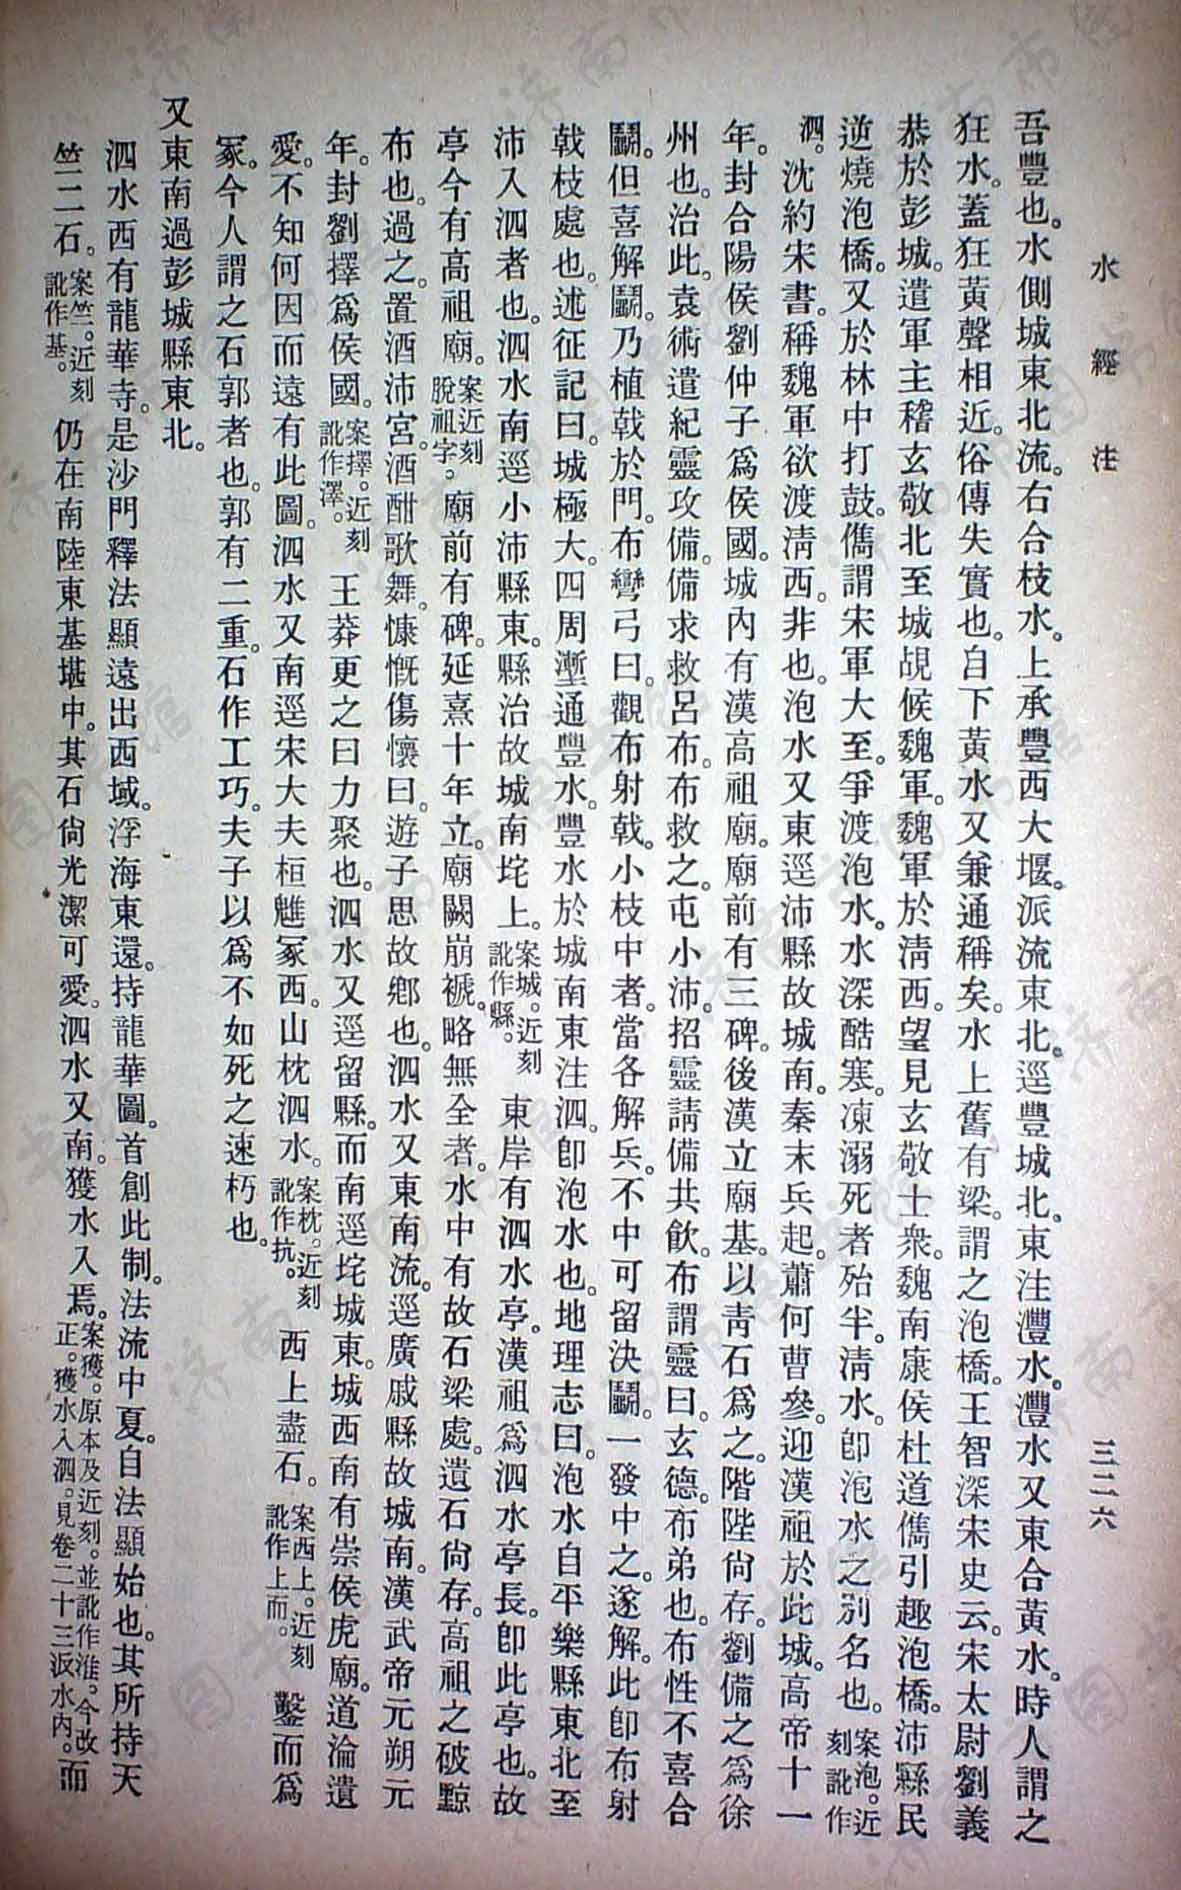 水經注
三二六
吾豐也。水側城東北流。右合枝水。上承豐西大堰。派流東北。逕豐城北。東注灃水。灃水又東合黃水。時人謂之
狂水。蓋狂黃聲相近。俗傳失實也。自下黃水又兼通稱矣。水上舊有梁。謂之泡橋。王智深宋史云。宋太尉劉義
恭於彭城。遣軍主稽玄敬北至城覘候魏軍。魏軍於淸西。望見玄敬士衆。魏南康侯杜道儁引趣泡橋。沛縣民
逆燒泡橋。又於林中打鼓。儁謂宋軍大至。爭渡泡水。水深酷寒。凍溺死者殆半。淸水。卽泡水之別名也。案泡。近刻訛作
泗。沈約宋書。稱魏軍欲渡淸西。非也。泡水又東逕沛縣故城南。秦末兵起。蕭何曹參。迎漢祖於此城。高帝十一
年。封合陽侯劉仲子爲侯國。城內有漢高祖廟。廟前有三碑。後漢立廟基。以靑石爲之。階陛尙存。劉備之爲徐
州也。治此。袁術遣紀靈攻備。備求救呂布。布救之。屯小沛。招靈請備共飮。布謂靈曰。玄德。布弟也。布性不喜合
鬭。但喜解鬭。乃植戟於門。布彎弓曰。觀布射戟。小枝中者。當各解兵。不中可留決鬭。一發中之。遂解。此卽布射
戟枝處也。述征記曰。城極大。四周壍通豐水。豐水於城南東注泗。卽泡水也。地理志曰。泡水自平樂縣東北至
沛入泗者也。泗水南逕小沛縣東。縣治故城南垞上。案城。近刻訛作縣。東岸有泗水亭。漢祖爲泗水亭長。卽此亭也。故
亭今有高祖廟。案近刻脫祖字。廟前有碑。延熹十年立。廟闕崩褫。略無全者。水中有故石梁處。遺石尙存。高祖之破黥
布也。過之。置酒沛宮。酒酣歌舞。慷慨傷懷曰。遊子思故鄕也。泗水又東南流。逕廣戚縣故城南。漢武帝元朔元
年。封劉擇爲侯國。案擇。近刻訛作澤。王莽更之曰力聚也。泗水又逕留縣。而南逕垞城東。城西南有崇侯虎廟。道淪遺
愛。不知何因而遠有此圖。泗水又南逕宋大夫桓魋冢西。山枕泗水。案枕。近刻訛作抗。西上盡石。案西上。近刻訛作上而。鑿而爲
冢。今人謂之石郭者也。郭有二重。石作工巧。夫子以爲不如死之速朽也。
又東南過彭城縣東北。
泗水西有龍華寺。是沙門釋法顯遠出西域。浮海東還。持龍華圖。首創此制。法流中夏。自法顯始也。其所持天
竺二石。案竺。近刻訛作基。仍在南陸東基堪中。其石尙光潔可愛。泗水又南。獲水入焉。案獲。原本及近刻。並訛作淮。今改正。獲水入泗。見卷二十三汳水內。而